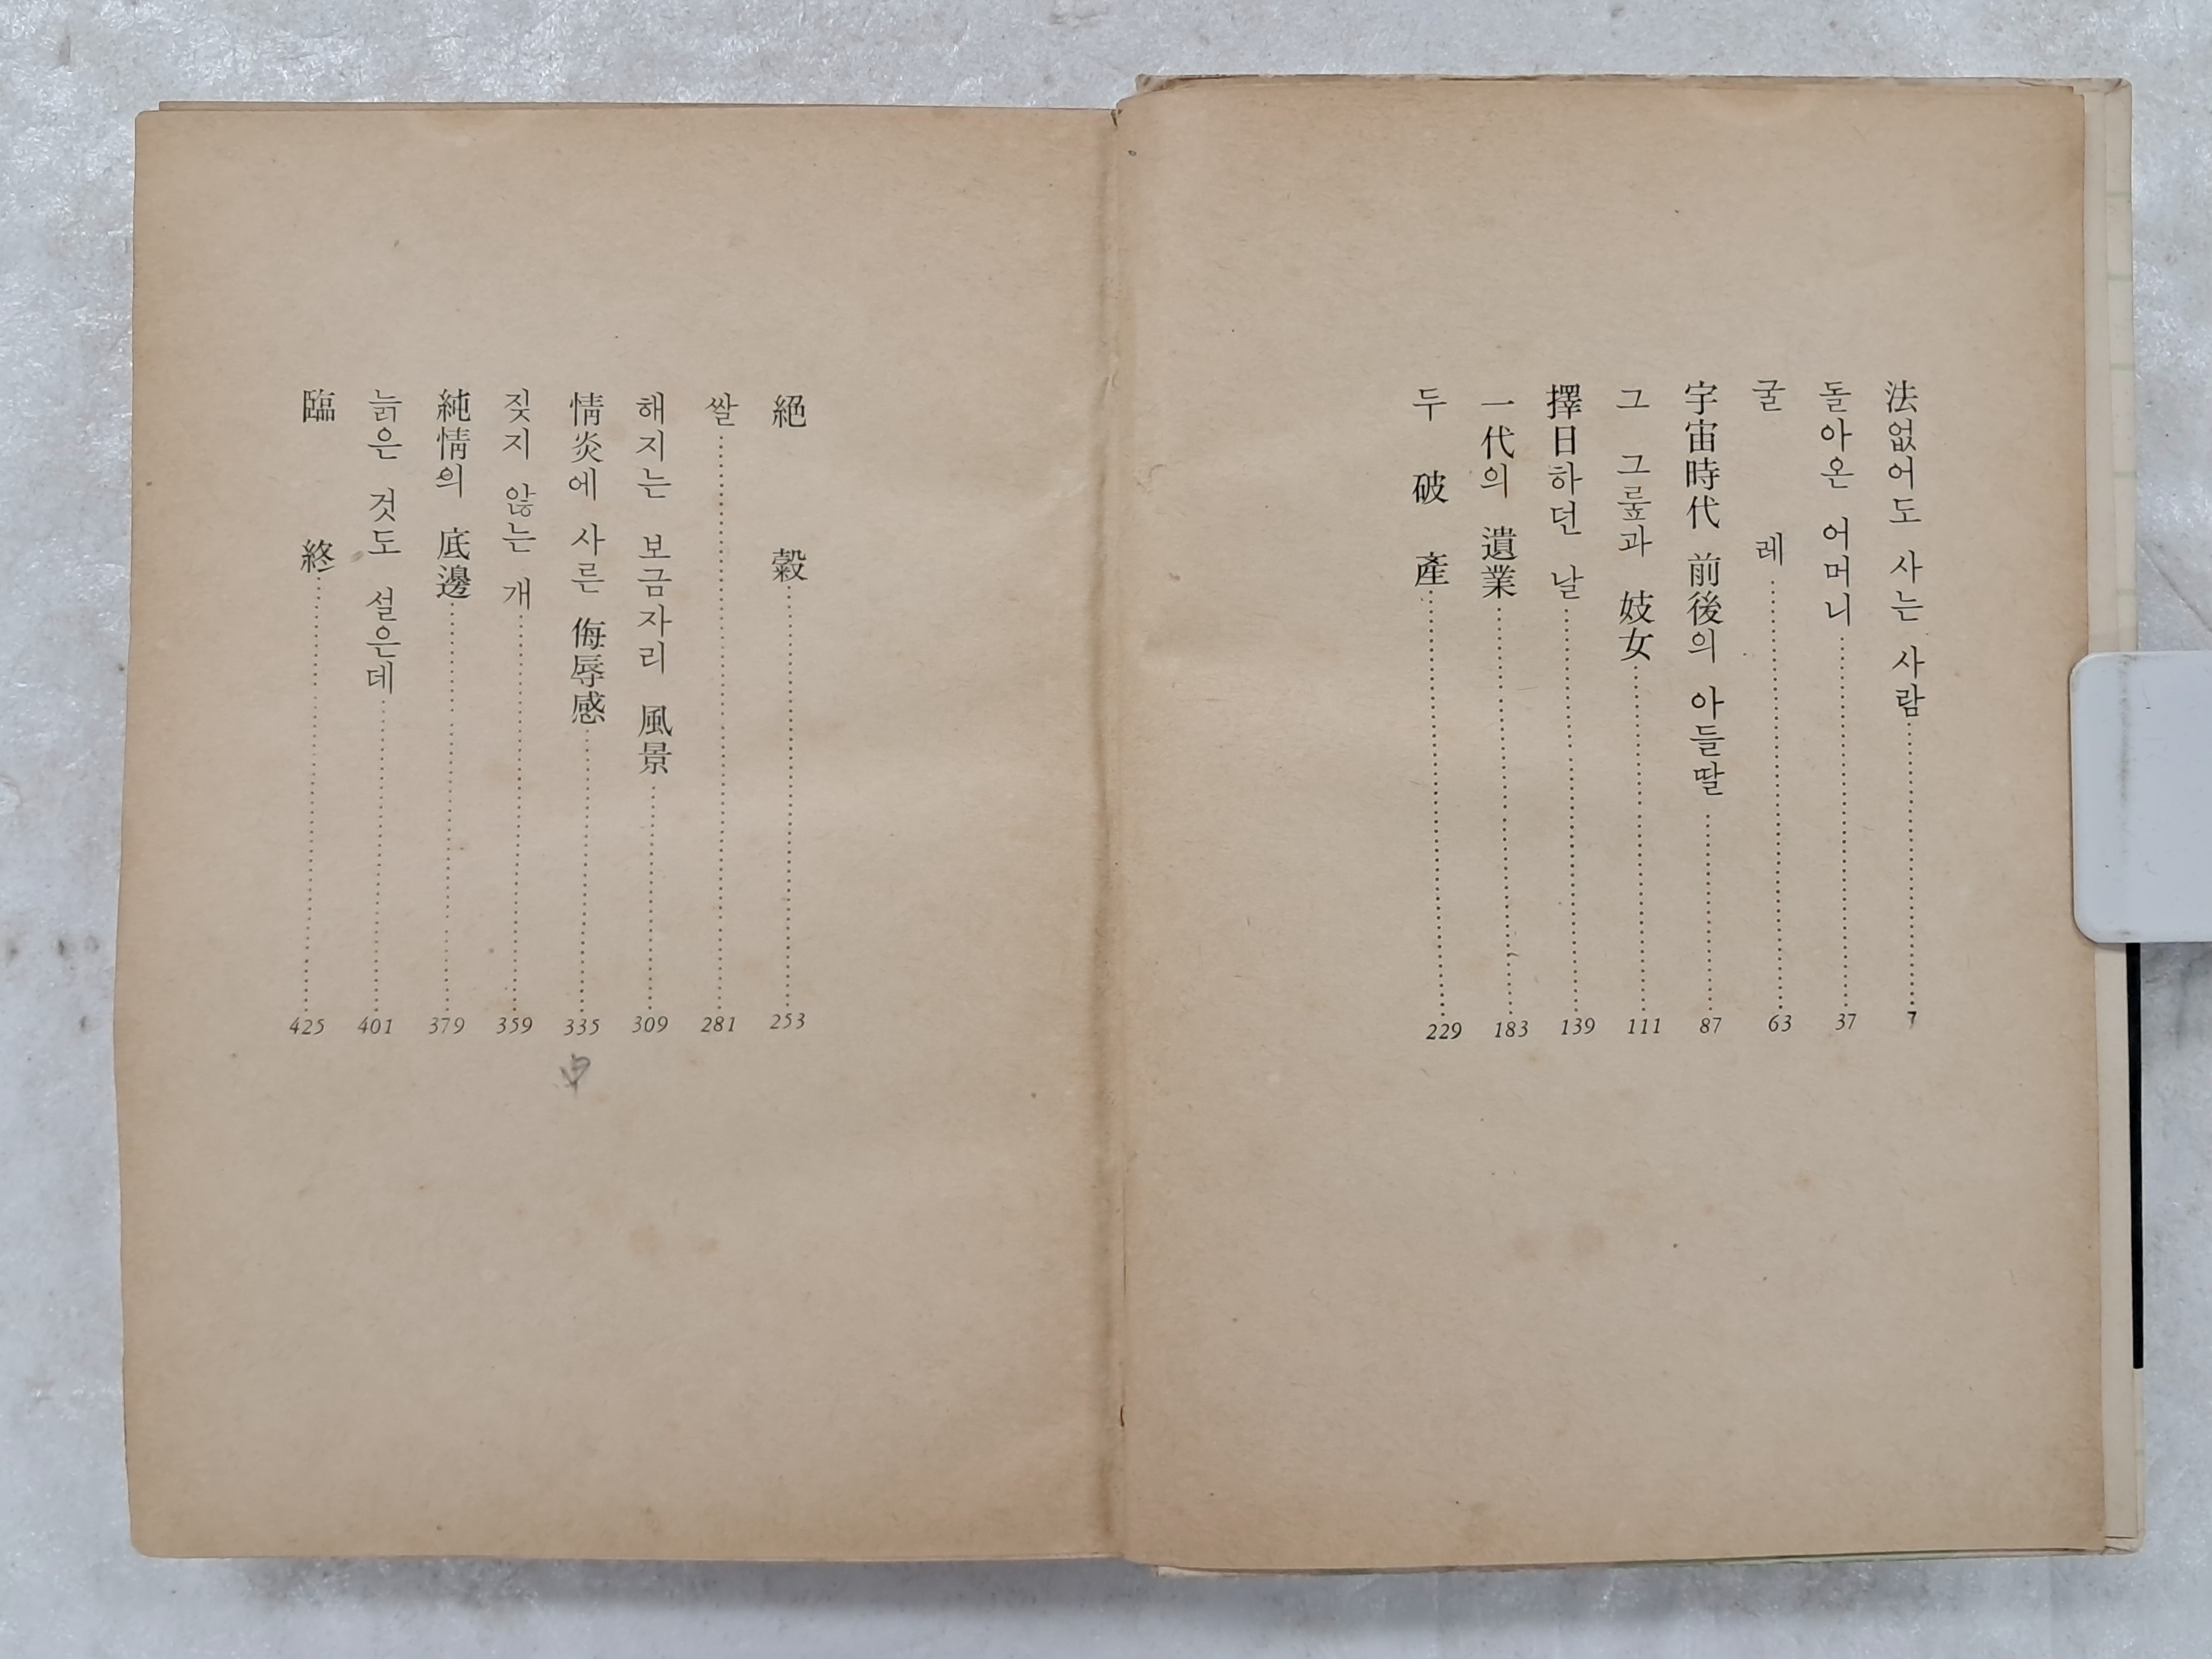 法없어도 사는 사람 7
돌아온 어머니 37
굴레 63
宇宙時代 前後의 아들딸 87
그 그룹과 妓女 111
擇日하던 날 139
一代의 遺業 183
두 破産 229
絕穀 253
쌀 281
해지는 보금자리 風景 309
情炎에 사른 侮辱感 335
짖지 않는 개 359
純情의 底邊 379
늙은 것도 설은데 401
臨終 425